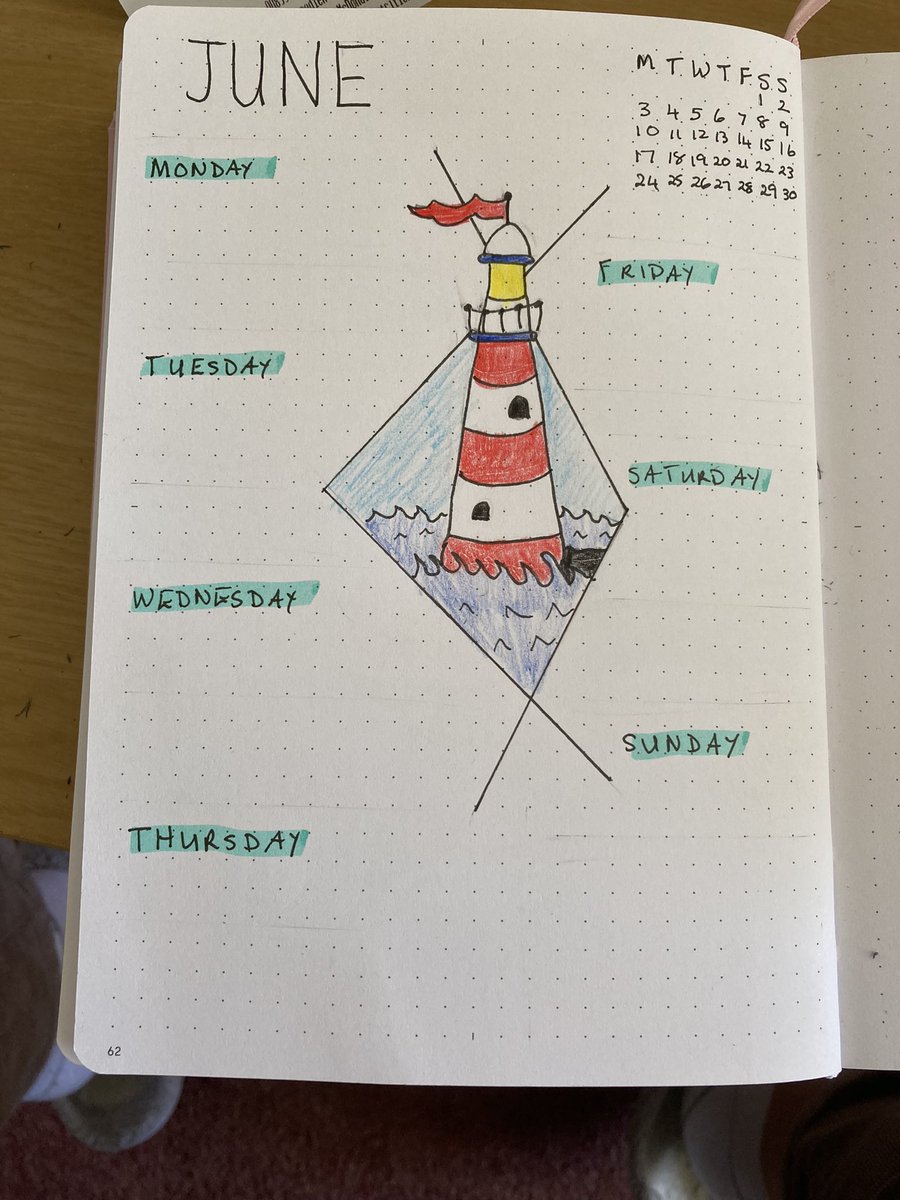 JUNE
M T W T F S S
1 2
3 4 5 6 7 8 9
10 11 12 13 14 15 16
17 18 19 20 21 22 23
24 25 26 27 28 29 30
MONDAY
TUESDAY
WEDNESDAY
THURSDAY
FRIDAY
SATURDAY
SUNDAY
62